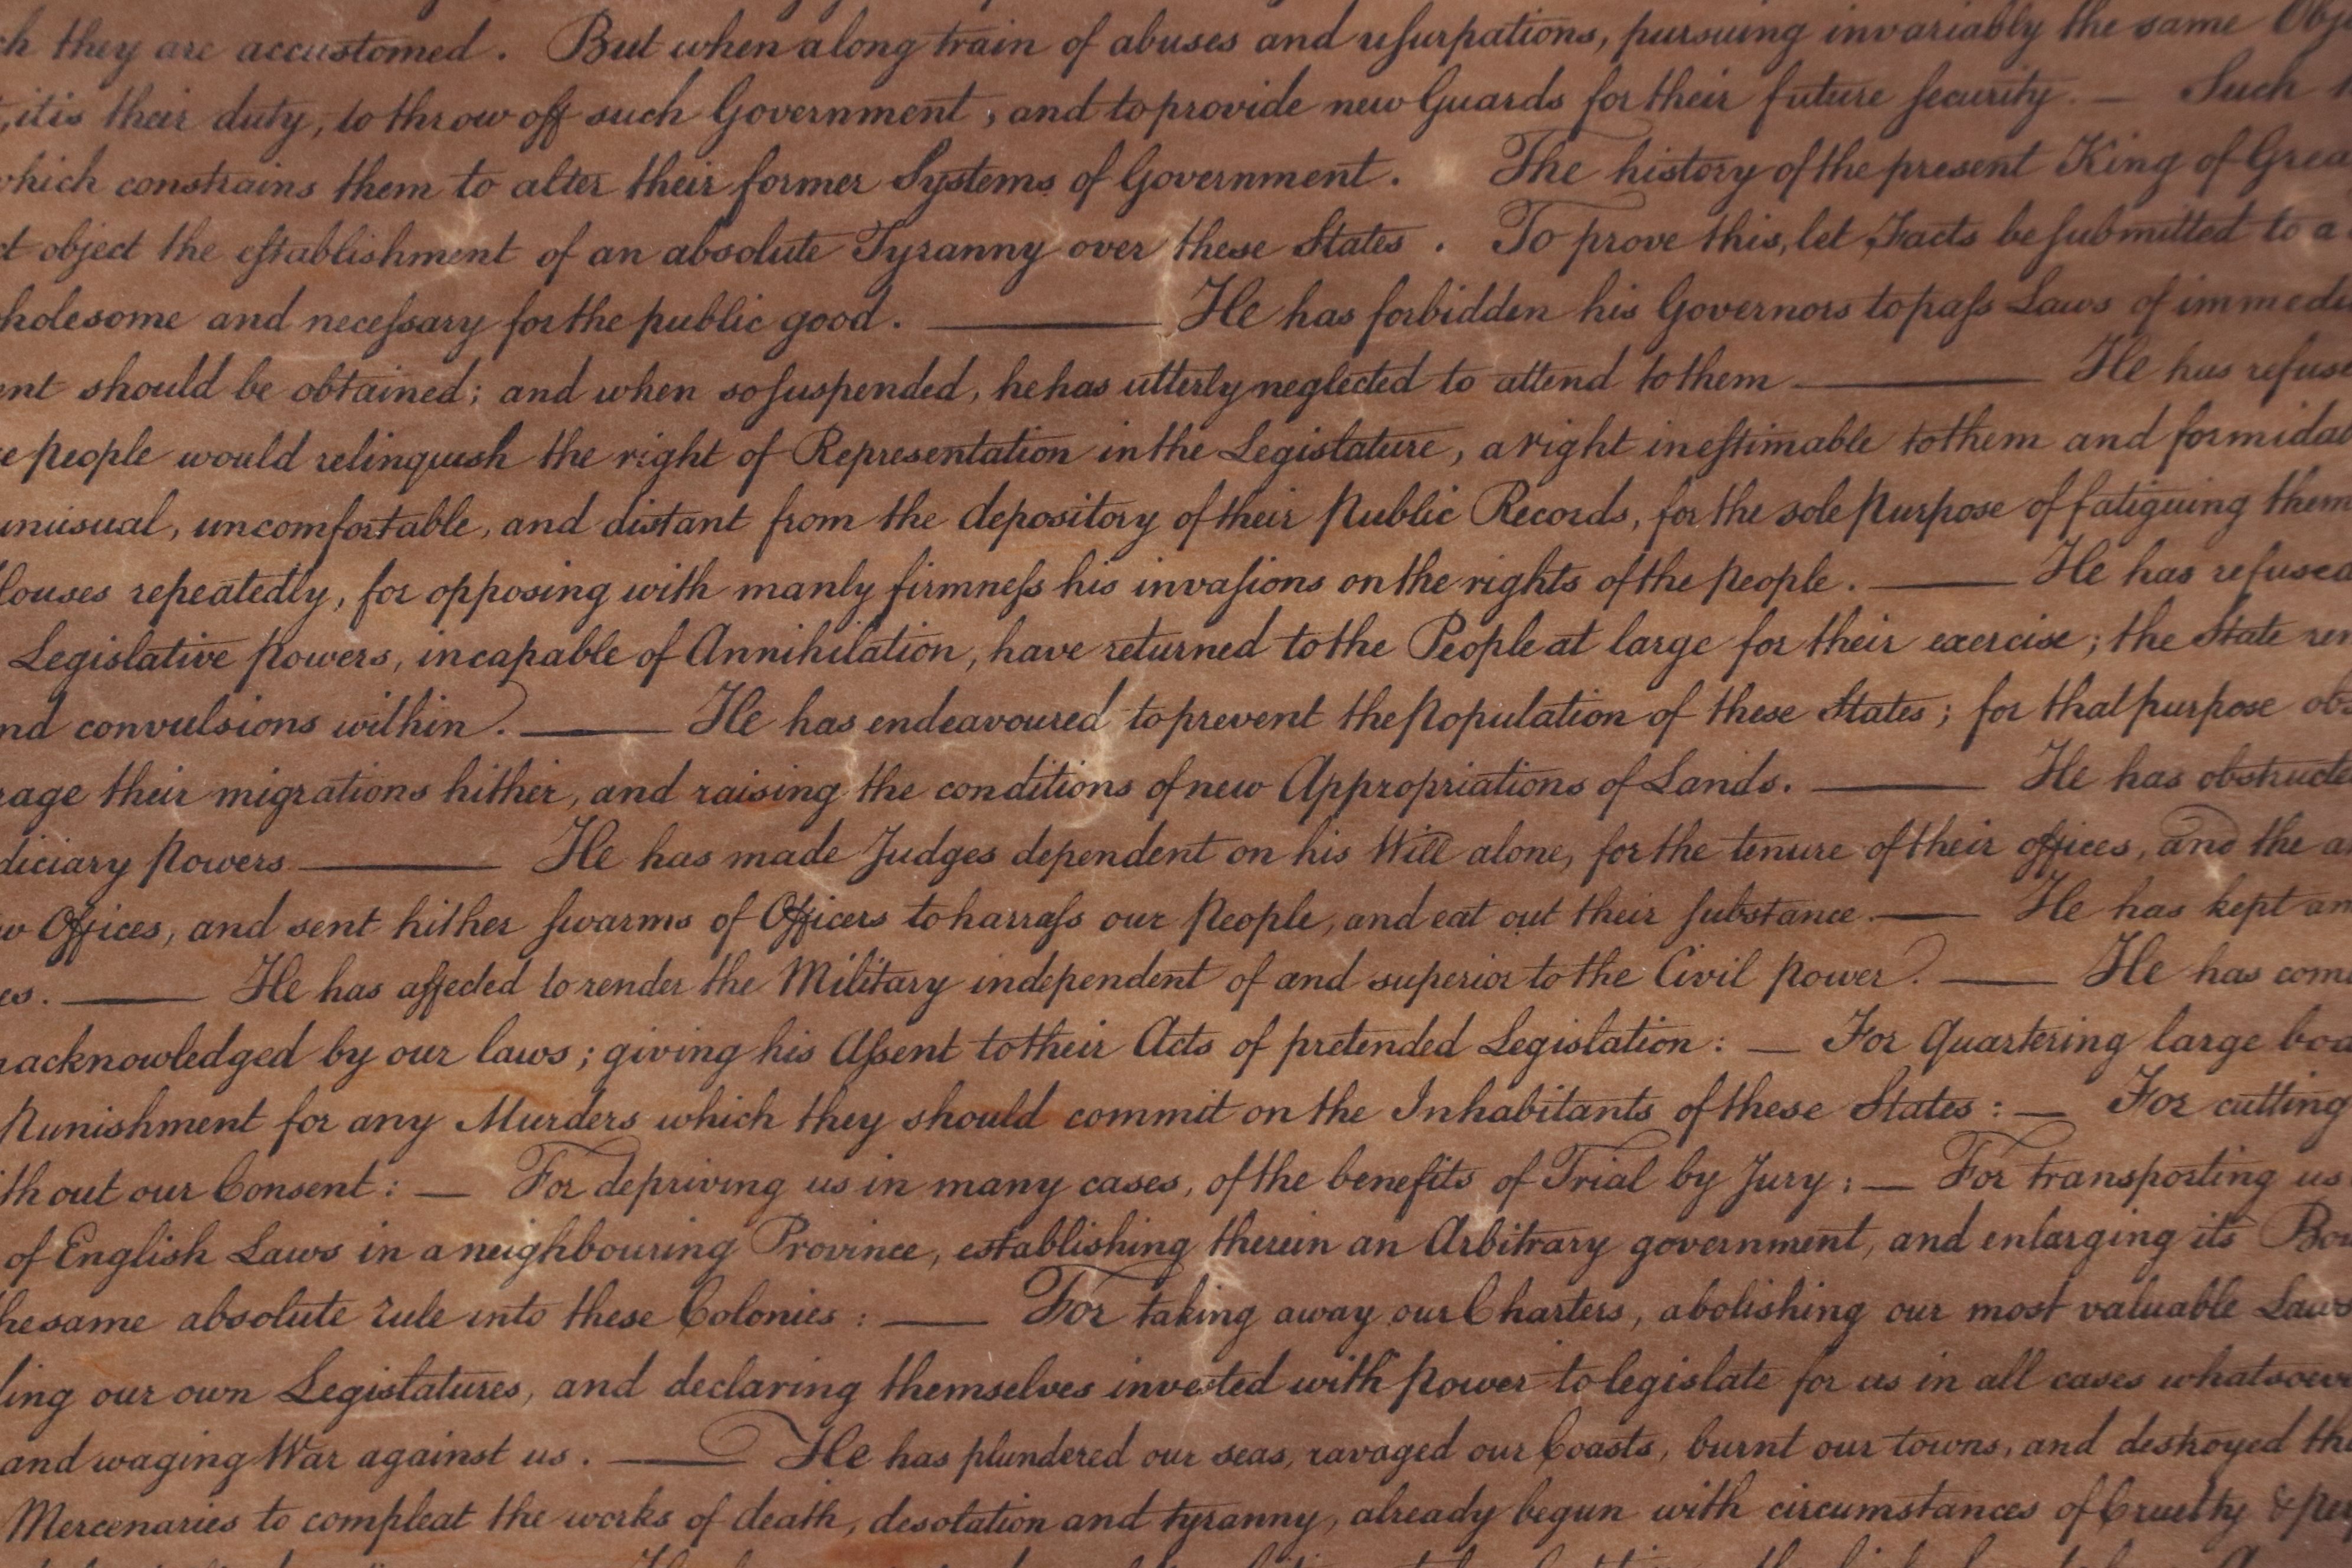 ch they are accustomed. But when a long train of abuses and usurpations, pursuing invariably the same Obj
, it is their duty, to throw off such Government, and to provide new Guards for their future security. — Such
which constrains them to alter their former Systems of Government. The history of the present King of Grea
ct object the establishment of an absolute Tyranny over these States. To prove this, let Facts be submitted to a
holesome and necessary for the public good. — He has forbidden his Governors to pass Laws of immedi
ent should be obtained; and when so suspended, he has utterly neglected to attend to them — He has refuse
e people would relinquish the right of Representation in the Legislature, a right inestimable to them and formidab
unusual, uncomfortable, and distant from the depository of their Public Records, for the sole purpose of fatiguing them
Houses repeatedly, for opposing with manly firmness his invasions on the rights of the people. — He has refused
Legislative powers, incapable of Annihilation, have returned to the People at large for their exercise; the State rem
nd convulsions within. — He has endeavoured to prevent the population of these States; for that purpose obs
rage their migrations hither, and raising the conditions of new Appropriations of Lands. — He has obstructe
diciary powers — He has made Judges dependent on his Will alone, for the tenure of their offices, and the a
w Offices, and sent hither swarms of Officers to harrass our people, and eat out their substance. — He has kept am
es. — He has affected to render the Military independent of and superior to the Civil power. — He has com
nacknowledged by our laws; giving his Assent to their Acts of pretended Legislation: — For Quartering large bod
Punishment for any Murders which they should commit on the Inhabitants of these States: — For cutting
ithout our Consent: — For depriving us in many cases, of the benefits of Trial by Jury: — For transporting us
of English Laws in a neighbouring Province, establishing therein an Arbitrary government, and enlarging its Bou
he same absolute rule into these Colonies: — For taking away our Charters, abolishing our most valuable Laws
ding our own Legislatures, and declaring themselves invested with power to legislate for us in all cases whatsoeve
and waging War against us. — He has plundered our seas, ravaged our Coasts, burnt our towns, and destroyed the
Mercenaries to compleat the works of death, desolation and tyranny, already begun with circumstances of Cruelty & per